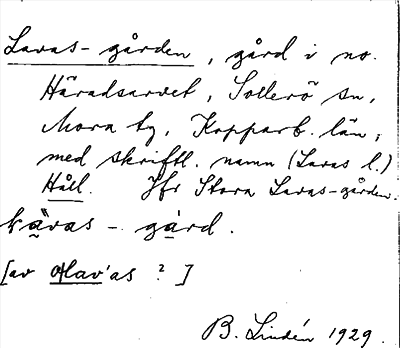 Lavas-gården, gård i no.
Häradsarvet, Sollerö sn,
Mora tg, Kopparb. län;
med skriftl. namn (Lavas l.)
Håll. Jfr Stora Lavas-gården.
-gård.
[av Olav'as ? ]
B. Lindén 1929.